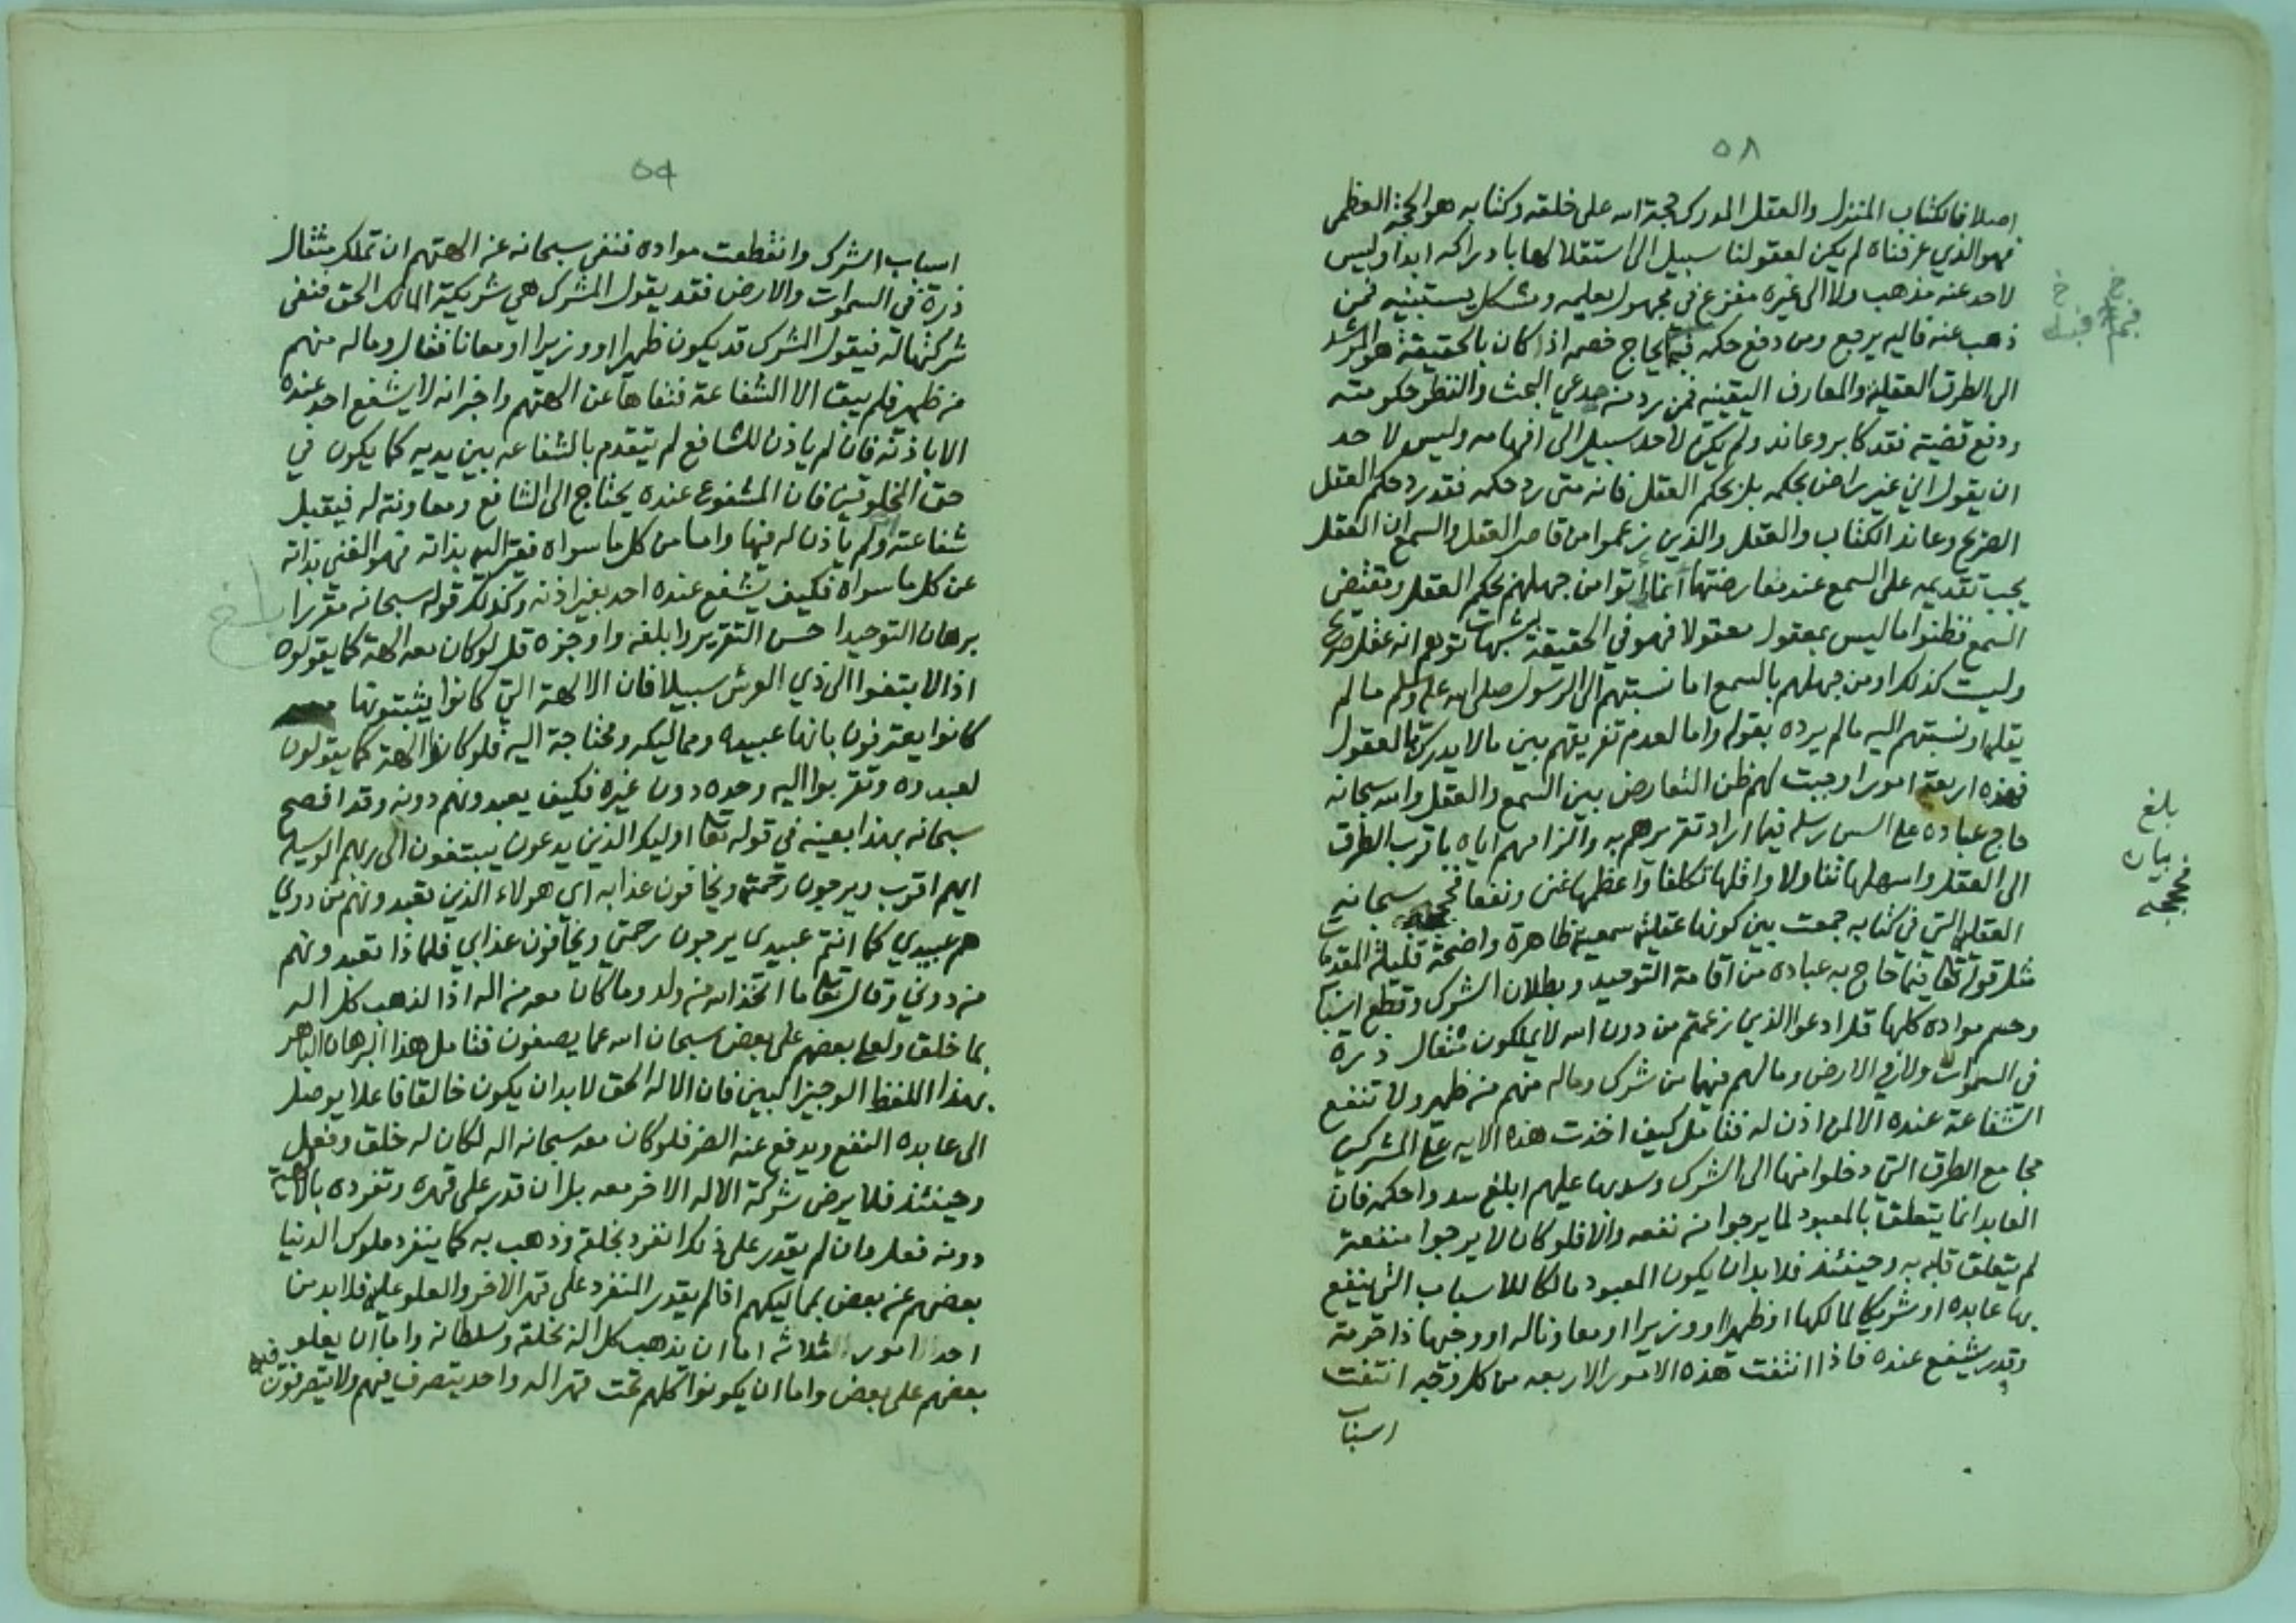 ٥٨
اصلا فالكتاب المنزل والعقل المدرك حجة الله على خلقه وكتابه هو الحجة العظمى
فهو الذي عرفناه لم يكن لعقولنا سبيل الى استقلالها بادراكه ابدا وليس
لاحد عنه مذهب ولا الى غيره مفزع في مجهول يعلمه ومشكل يستبينه فمن
ذهب عنه فاليه يرجع ومن دفع حكمه فبه يحاج خصمه اذا كان بالحقيقة هو المرشد
الى الطرق العقلية والمعارف اليقينيه فمن رد من مدعي البحث والنظر حكومته
ودفع قضيته فقد كابر وعاند ولم يكن لاحد سبيل الى افهامه وليس لاحد
ان يقول اني غير راض بحكمه بل بحكم العقل فانه متى رد حكمه فقد رد حكم العقل
الصريح وعاند الكتاب والعقل والذين زعموا من قاصر العقل والسمع ان العقل
يجب تقديمه على السمع عند معارضتها انما اتوا من جهلهم بحكم العقل ومقتضى
السمع فظنوا ما ليس بمعقول معقولا فهو في الحقيقة شبهات توهم انه عقل صريح
وليست كذلك او من جهلهم بالسمع اما نسبتهم الى الرسول صلى الله عليه وسلم مالم
يقله او نسبتهم اليه مالم يرده بقوله واما لعدم تفريقهم بين مالا يدرك بالعقول
فهذه اربعة امور اوجبت لهم ظن التعارض بين السمع والعقل والله سبحانه
حاج عباده على السن رسله فيما اراد تقريرهم به والزامهم اياه باقرب الطرق
الى العقل واسهلها تناولا واقلها تكلفا واعظمها غنى ونفعا فحججه سبحانه
العقلية التي في كتابه جمعت بين كونها عقلية سمعية ظاهرة واضحة قليلة المقدمات
مثل قوله تعالى فيما حاج به عباده من اقامة التوحيد وبطلان الشرك وقطع اسبابه
وحسم مواده كلها قل ادعوا الذين زعمتم من دون الله لا يملكون مثقال ذرة
في السموات ولا في الارض ومالهم فيهما من شرك وماله منهم من ظهير ولا تنفع
الشفاعة عنده الا لمن اذن له فتامل كيف اخذت هذه الايه على المشركين
مجامع الطرق التي دخلوا منها الى الشرك وسدتها عليهم ابلغ سد واحكمه فان
العابد انما يتعلق بالمعبود لما يرجوا من نفعه والا فلو كان لا يرجوا منفعته
لم يتعلق قلبه به وحينئذ فلابد ان يكون المعبود مالكا للاسباب التي ينفع
بها عابده او شريكا لمالكها او ظهيرا او وزيرا او معاونا له او وجيها ذا حرمة
وقدر يشفع عنده فاذا انتفت هذه الامور الاربعه من كل وجه انتفت
اسباب
بلغ
٥٩
اسباب الشرك وانقطعت مواده فنفى سبحانه عن الهتهم ان تملك مثقال
ذرة في السموات والارض فقد يقول المشرك هي شريكة المالك الحق فنفى
شركتها له فيقول المشرك قد يكون ظهيرا او وزيرا او معانا فقال وماله منهم
من ظهير فلم يبق الا الشفاعة فنفاها عن الهتهم واخبر انه لا يشفع احد عنده
الا باذنه فان لم ياذن للشافع لم يتقدم بالشفاعه بين يديه كما يكون في
حق المخلوقين فان المشفوع عنده يحتاج الى الشافع ومعاونته له فيقبل
شفاعته ولم ياذن له فيها واما من كل ما سواه فقير اليه بذاته فهو الغني بذاته
عن كل ما سواه فكيف يشفع عنده احد بغير اذنه وكذلك قوله سبحانه مقررا
برهان التوحيد احسن التقرير وابلغه واوجزه قل لو كان معه الهة كما يقولون
اذا لابتغوا الى ذي العرش سبيلا فان الالهة التي كانوا يثبتونها
كانوا يعترفون بانها عبيده ومماليكه ومحتاجة اليه فلو كانوا الهة كما يقولون
لعبدوه وتقربوا اليه وحده دون غيره فكيف يعبدونهم دونه وقد افصح
سبحانه بهذا بعينه في قوله تعالى اوليك الذين يدعون يبتغون الى ربهم الوسيلة
ايهم اقرب ويرجون رحمته ويخافون عذابه اي هولاء الذين تعبدونهم من دوني
هم عبيدي كما انتم عبيدي يرجون رحمتي ويخافون عذابي فلماذا تعبدونهم
من دوني وقال تعالى ما اتخذ الله من ولد وما كان معه من اله اذا لذهب كل اله
بما خلق ولعلا بعضهم على بعض سبحان الله عما يصفون فتامل هذا البرهان الباهر
بهذا اللفظ الوجيز البين فان الاله الحق لابد ان يكون خالقا فاعلا يوصل
الى عابده النفع ويدفع عنه الضر فلو كان معه سبحانه اله لكان له خلق وفعل
وحينئذ فلا يرضى شركة الاله الاخر معه بل ان قدر على قهره وتفرده بالالهية
دونه فعل وان لم يقدر على ذلك انفرد بخلقه وذهب به كما ينفرد ملوك الدنيا
بعضهم عن بعض بمماليكهم اذا لم يقدر المنفرد على قهر الاخر والعلو عليه فلابد من
احد الامور الثلاثه اما ان يذهب كل اله بخلقه وسلطانه واما ان يعلو
بعضهم على بعض واما ان يكونوا كلهم تحت قهر اله واحد يتصرف فيهم ولا يتصرفون فيه